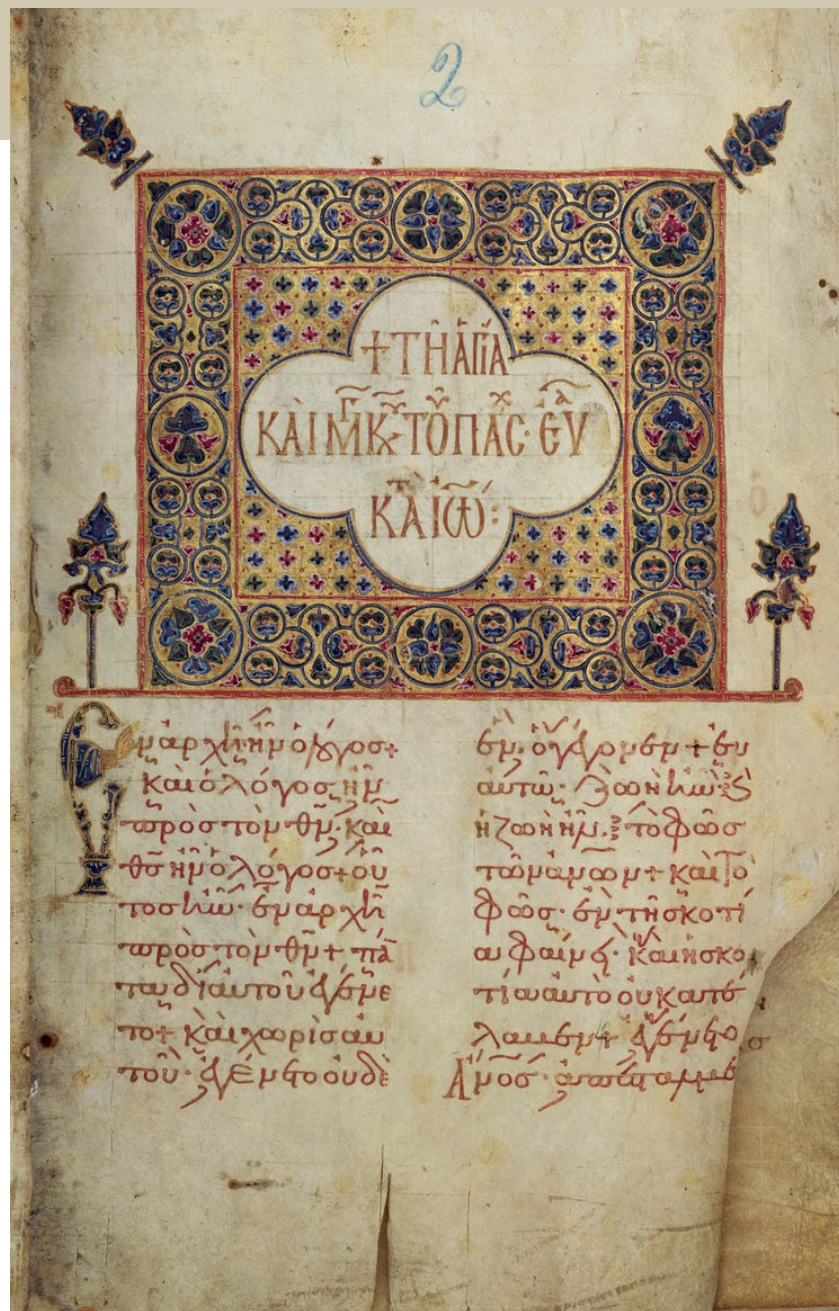 2.
+Τῌ ἉΓΊΑ
ΚΑῚ Μ Κ ΤΟ͂Υ ΠΆΣΧ· ἘΥΑ
ΚΑΤ ἸΩ:
Ἐν ἀρχῆ ἦν ὁ λόγος+
καὶ ὁ λόγος ἦν
πρὸς τὸν θν· καὶ
θς ἦν ὁ λόγος+ οὗ
τος ἦν· ἐν ἀρχῆ
πρὸς τὸν θν+ πά
τα δι αυτοῦ ἐγένε
το+ καὶ χωρὶς αυ
τοῦ· ἐγένετο οὐδὲ
ἕν· ὃ γέγονεν+ ἐν
αὐτῶ· ζωὴ ἦν· καὶ
ἡ ζωὴ ἦν· τὸ φῶς
τῶν ἀνων+ καὶ τὸ
φῶς· ἐν τῆ σκοτί
α φαίνει· καὶ ἡ σκο
τία αυτὸ οὐ κατέ
λαβεν+ ἐγένετο
ἄνος· ἀπεσταλμέ